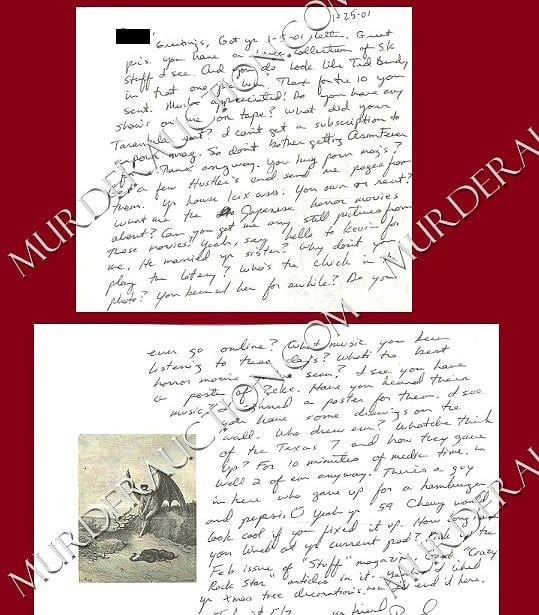 1-25-01
Greetings, Got yr 1-5-01 letter. Great
pics. you have a nice collection of S.K.
stuff I see. And you do look like Ted Bundy
in that one pic. Thanx for the 10 you
sent. Much appreciated! Do you have any
shows on me on tape? What did your
Tarantula eat? I can't get a subscription to
a porn mag. So don't bother getting Asian Fever
Thanx anyway. You buy porn mag's?
a few Hustler's and send me pages from
them. Yr house kix ass! You own or rent?
What are the Japanese horror movies
about? Can you get me any still pictures from
those movies? Yeah, say hello to Kevin for
me. He married yr sister? Why don't you
play the lottery? Who's the chick in the
photo? You been w/ her for awhile? Do you
ever go online? What music you been
listening to these days? What's the best
horror movie seen? I see you have
a poster of Zeke. Have you heard their
music? I signed a poster for them. I see
you have some drawings on the
wall. Who drew em? Whatcha think
of the Texas 7 and how they gave
up? For 10 minutes of media time. w/
2 of em anyway. There's a guy
in here who gave up for a hamburger
and pepsi. Yeah yr 59 Chevy would
look cool if you fixed it up. How long have
you lived at yr current pad? Pick up the
Feb issue of "Stuff" magazine. Good "Crazy
Rock Star" articles in it. I liked
yr Xmas tree decorations. end it here.
yr friend
MURDERAUCTION.COM
MURDERAUCTION.COM
MURDERAUCTION.COM
MURDERAUCTION.COM